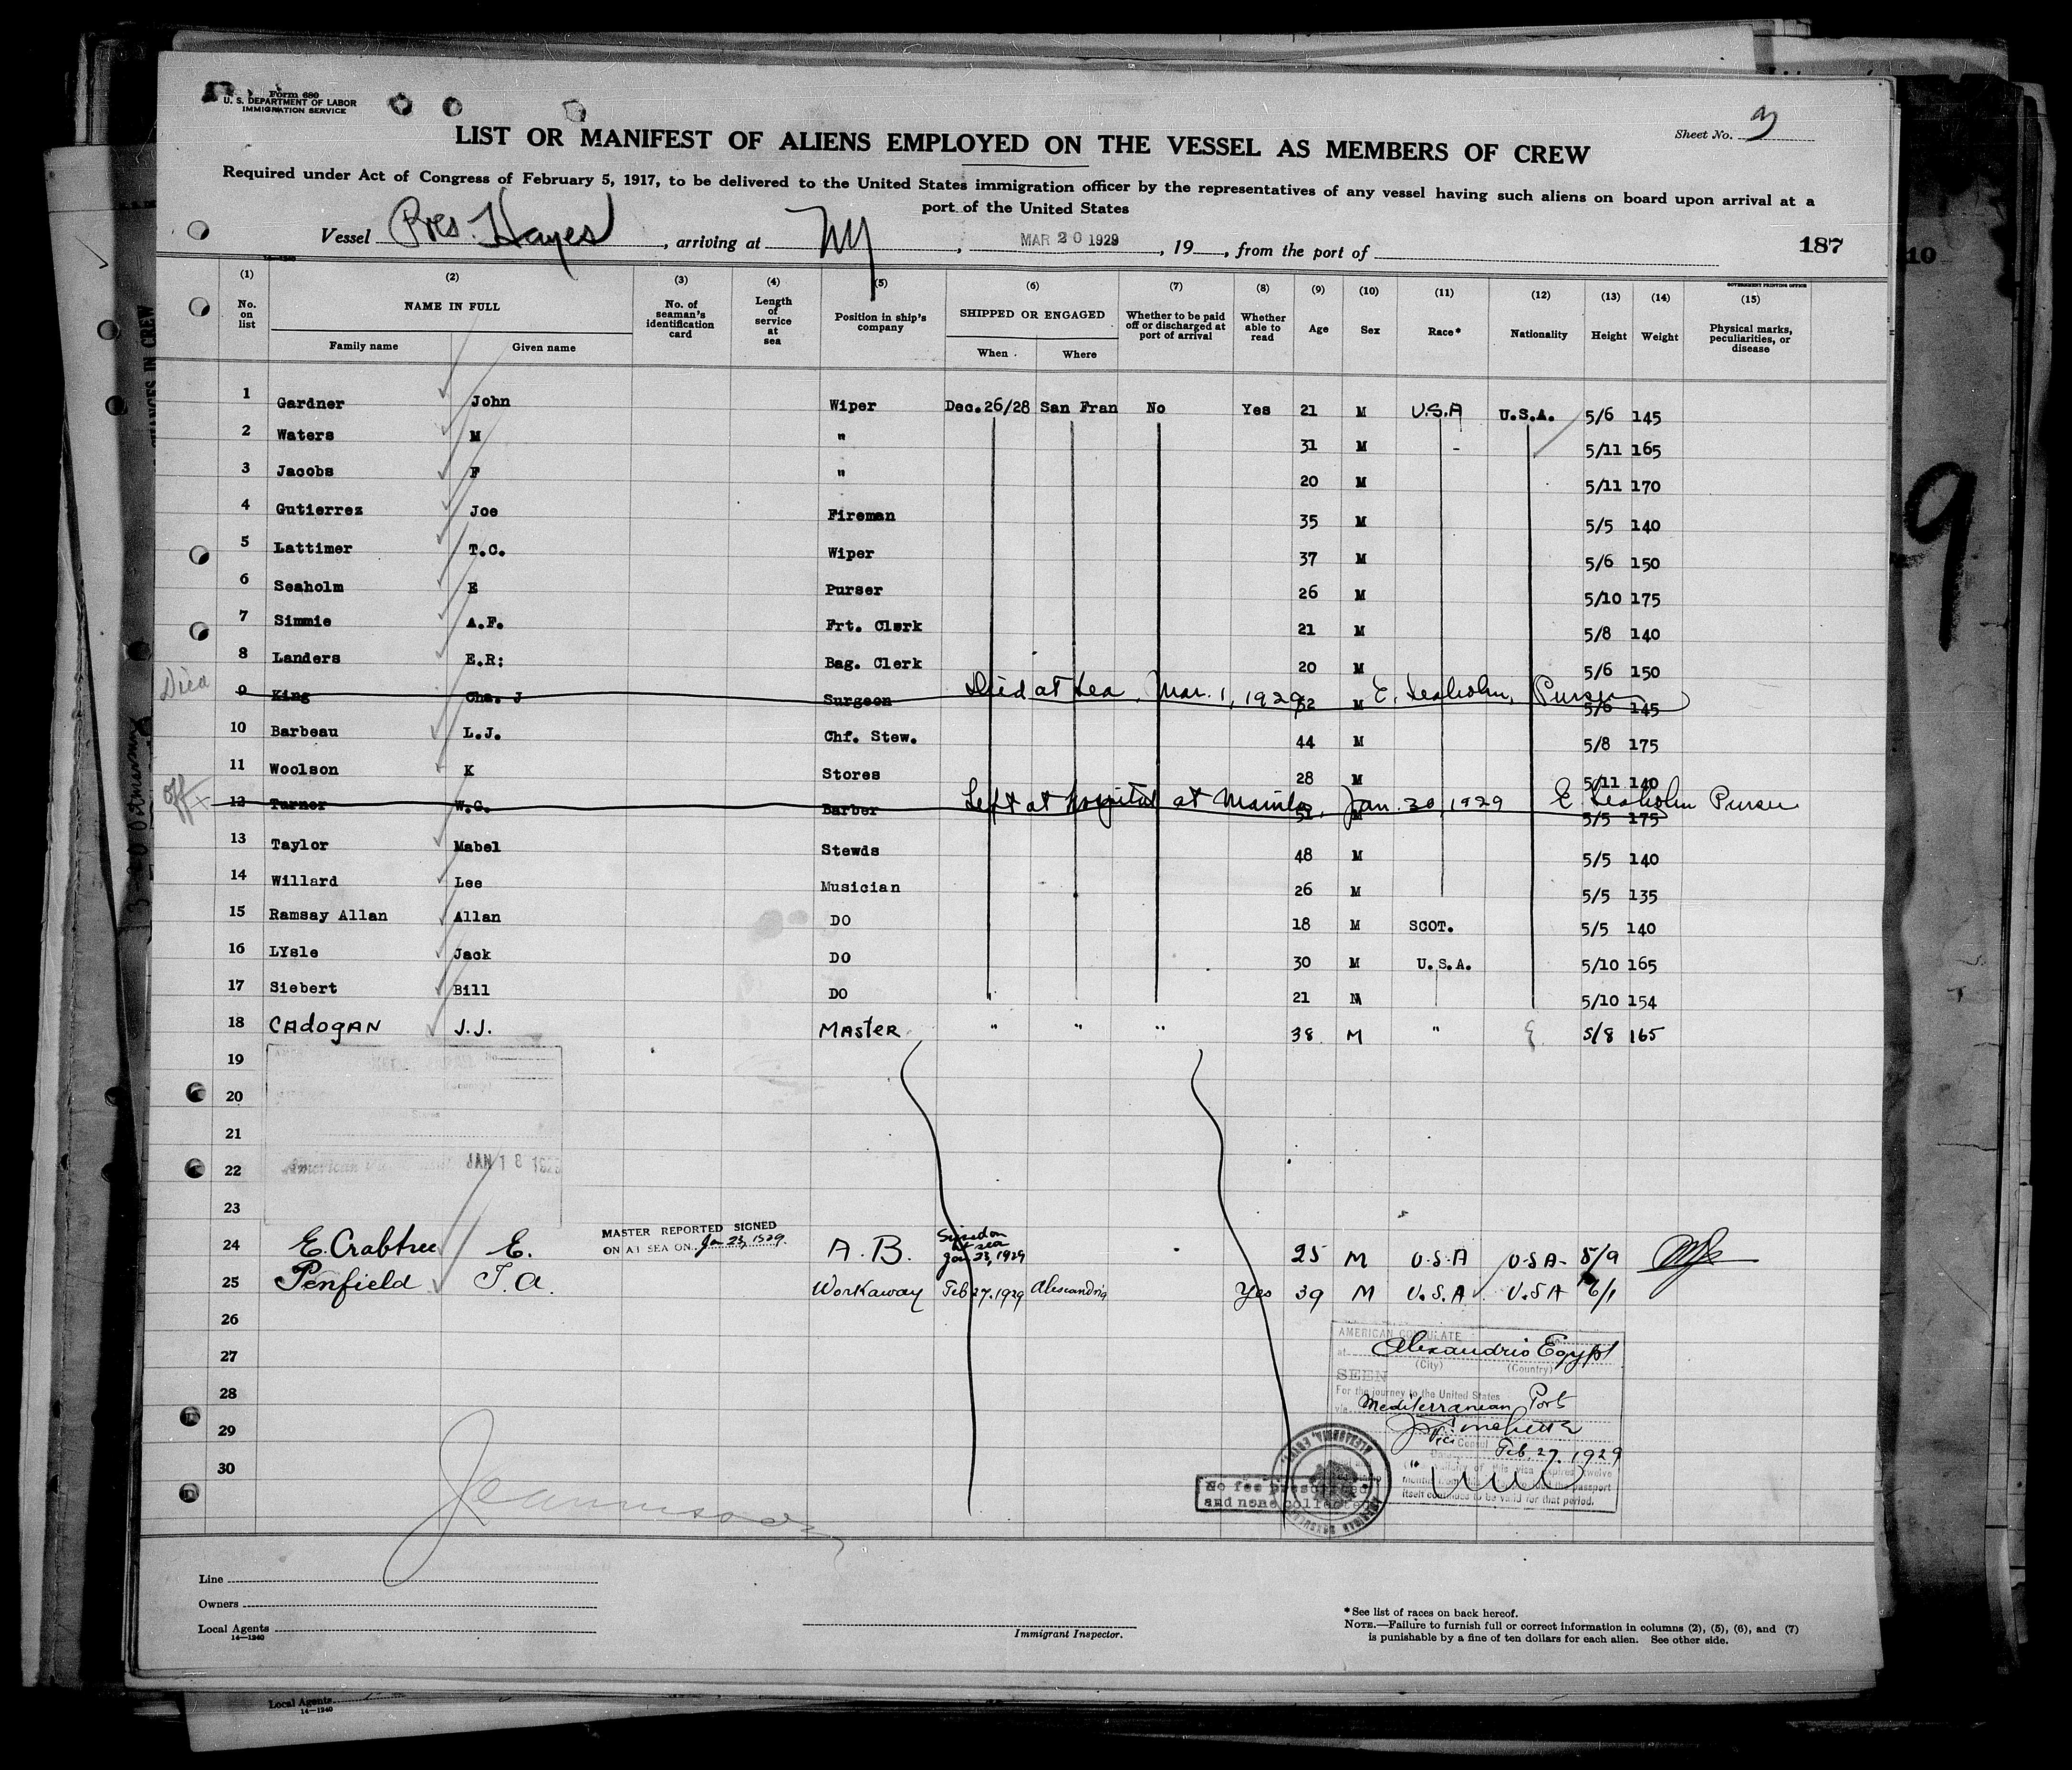 Form 680
U. S. DEPARTMENT OF LABOR
IMMIGRATION SERVICE
Sheet No. 3
LIST OR MANIFEST OF ALIENS EMPLOYED ON THE VESSEL AS MEMBERS OF CREW
Required under Act of Congress of February 5, 1917, to be delivered to the United States immigration officer by the representatives of any vessel having such aliens on board upon arrival at a
port of the United States
Vessel Pres. Hayes, arriving at NY, MAR 20 1929, 19, from the port of 187
GOVERNMENT PRINTING OFFICE
(1) (2) (3) (4) (5) (6) (7) (8) (9) (10) (11) (12) (13) (14) (15)
No. on list NAME IN FULL Family name Given name No. of seaman's identification card Length of service at sea Position in ship's company SHIPPED OR ENGAGED When Where Whether to be paid off or discharged at port of arrival Whether able to read Age Sex Race* Nationality Height Weight Physical marks, peculiarities, or disease
1 Gardner John Wiper Dec.26/28 San Fran No Yes 21 M U.S.A U.S.A. 5/6 145
2 Waters M " 31 M - 5/11 165
3 Jacobs F " 20 M 5/11 170
4 Gutierrez Joe Fireman 35 M 5/5 140
5 Lattimer T.C. Wiper 37 M 5/6 150
6 Seaholm E Purser 26 M 5/10 175
7 Simmie A.F. Frt. Clerk 21 M 5/8 140
8 Landers E.R: Bag. Clerk 20 M 5/6 150
Died 9 King Cha. J Surgeon Died at sea Mar. 1, 1929 52 M E. Seaholm, Purser 5/6 145
10 Barbeau L.J. Chf. Stew. 44 M 5/8 175
11 Woolson K Stores 28 M 5/11 140
Off x 12 Turner W.C. Barber Left at hospital at Manila, Jan. 30, 1929 M E Seaholm Purser 5/5 175
13 Taylor Mabel Stewds 48 M 5/5 140
14 Willard Lee Musician 26 M 5/5 135
15 Ramsay Allan Allan DO 18 M SCOT. 5/5 140
16 LYsle Jack DO 30 M U.S.A. 5/10 165
17 Siebert Bill DO 21 M 5/10 154
18 CADOGAN J.J. MASTER " " " 38 M " 5/8 165
19
20
21
22 American JAN 18 1929
23
24 E. Crabtree E. MASTER REPORTED SIGNED ON AT SEA ON Jan 23, 1929. A.B. Signed on at sea Jan 23, 1929 25 M U.S.A U.S.A. 5/9
25 Penfield T.A. Workaway Feb 27, 1929 Alexandria Yes 39 M U.S.A U.S.A 6/1
26
27
28
29
30
AMERICAN CONSULATE
at Alexandria Egypt
(City) (Country)
SEEN
For the journey to the United States
via Mediterranean Ports
Vice Consul
Feb 27, 1929
itself continues to be valid for that period.
No fee prescribed
and none collected
Line
Owners
Local Agents
14—1240
Immigrant Inspector.
*See list of races on back hereof.
NOTE.—Failure to furnish full or correct information in columns (2), (5), (6), and (7)
is punishable by a fine of ten dollars for each alien. See other side.
Local Agents
14—1240
10
9